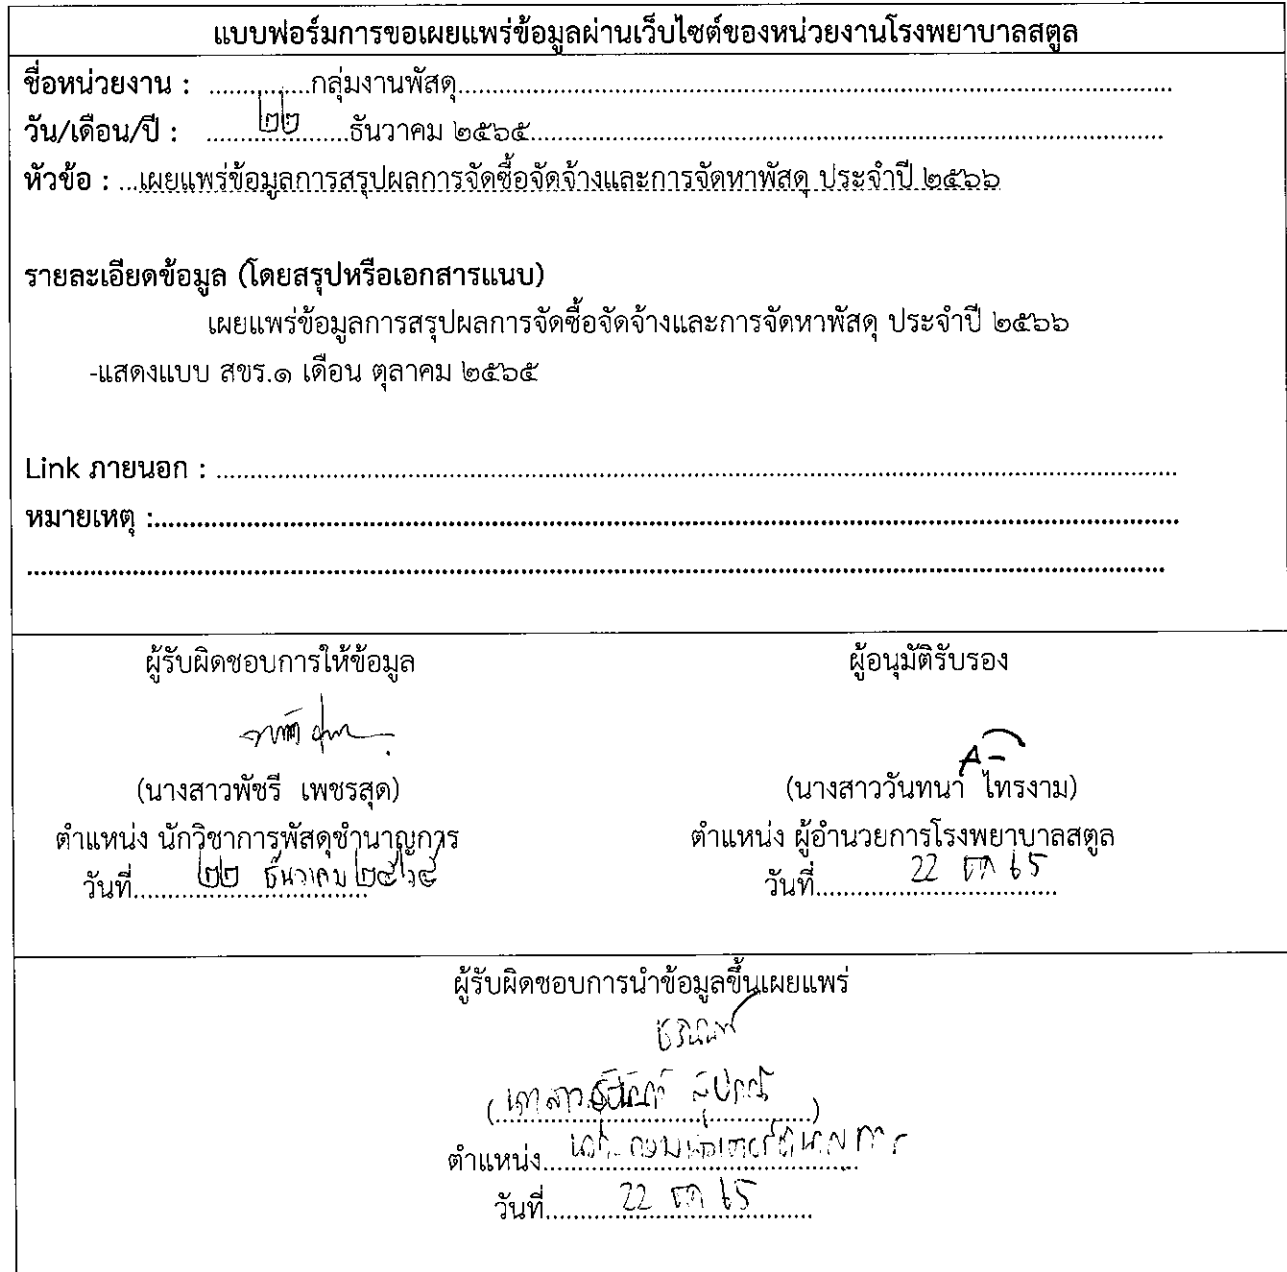 แบบฟอร์มการขอเผยแพร่ข้อมูลผ่านเว็บไซต์ของหน่วยงานโรงพยาบาลสตูล
ชื่อหน่วยงาน : ...............กลุ่มงานพัสดุ...............
วัน/เดือน/ปี : ........๒๒........ธันวาคม ๒๕๖๕...............
หัวข้อ : ...เผยแพร่ข้อมูลการสรุปผลการจัดซื้อจัดจ้างและการจัดหาพัสดุ ประจำปี ๒๕๖๖
รายละเอียดข้อมูล (โดยสรุปหรือเอกสารแนบ)
เผยแพร่ข้อมูลการสรุปผลการจัดซื้อจัดจ้างและการจัดหาพัสดุ ประจำปี ๒๕๖๖
-แสดงแบบ สขร.๑ เดือน ตุลาคม ๒๕๖๕
Link ภายนอก : ...............
หมายเหตุ :...............
ผู้รับผิดชอบการให้ข้อมูล
(นางสาวพัชรี เพชรสุด)
ตำแหน่ง นักวิชาการพัสดุชำนาญการ
วันที่.....๒๒ ธันวาคม ๒๕๖๕
ผู้อนุมัติรับรอง
(นางสาววันทนา ไทรงาม)
ตำแหน่ง ผู้อำนวยการโรงพยาบาลสตูล
วันที่.....22 ธค 65
ผู้รับผิดชอบการนำข้อมูลขึ้นเผยแพร่
ตำแหน่ง.....
วันที่.....22 ธค 65